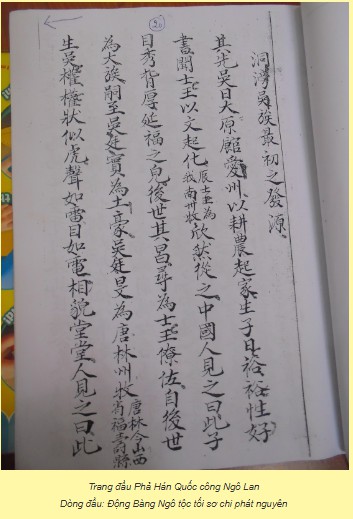 20
洞吳族最初之發源
其先吳日大原館愛州以耕農起家生子曰裕裕性好
書聞士王以文起化辰士王為我南州牧欣然從之中國人見之曰此子
目秀背厚延福之皃後世其昌尋為士王僚佐自後世
為大族嗣至吳廷實為土豪吳廷旻為唐林州牧唐林今山西福壽縣
生吳權權狀似虎聲如雷目如電相貌堂堂人見之曰此
Trang đầu Phả Hán Quốc công Ngô Lan
Dòng đầu: Động Bàng Ngô tộc tối sơ chi phát nguyên